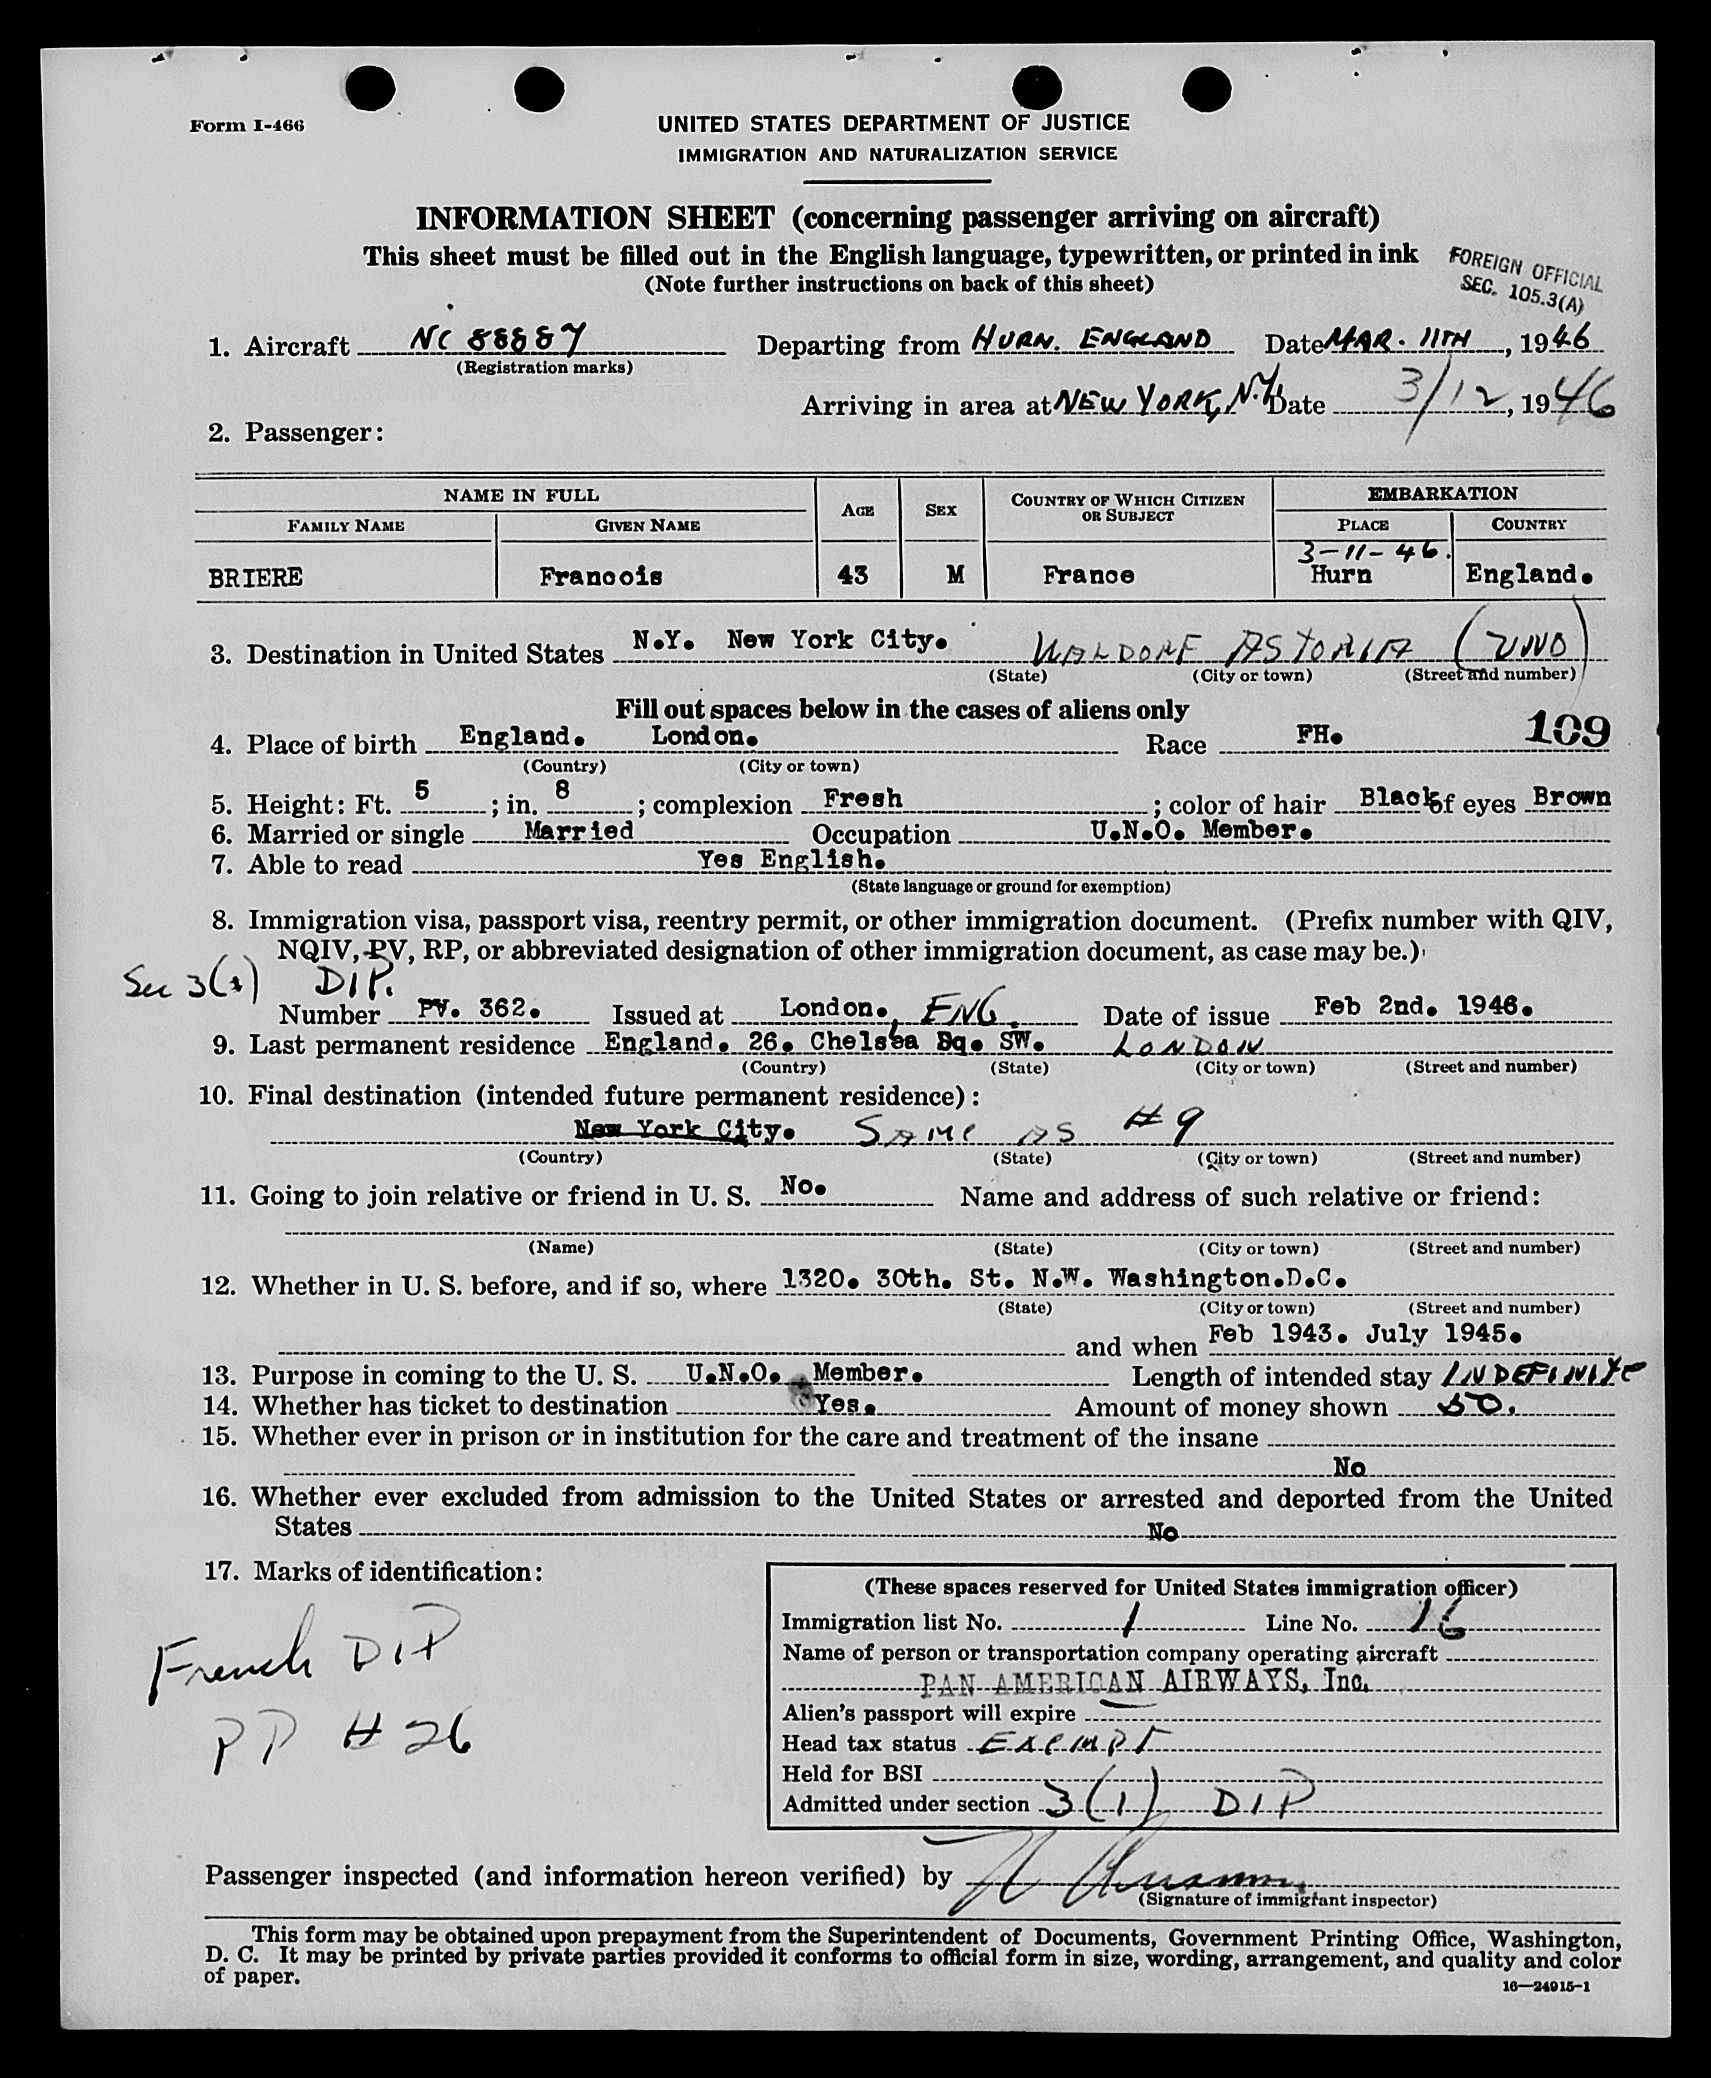 Form I-466
UNITED STATES DEPARTMENT OF JUSTICE
IMMIGRATION AND NATURALIZATION SERVICE
INFORMATION SHEET (concerning passenger arriving on aircraft)
This sheet must be filled out in the English language, typewritten, or printed in ink
(Note further instructions on back of this sheet)
FOREIGN OFFICIAL
SEC. 105.3(A)
1. Aircraft NC 88887 Departing from HURN. ENGLAND Date MAR. 11TH, 1946
(Registration marks)
Arriving in area at NEW YORK, N.Y. Date 3/12, 1946
2. Passenger:
NAME IN FULL AGE SEX COUNTRY OF WHICH CITIZEN OR SUBJECT EMBARKATION
FAMILY NAME GIVEN NAME PLACE COUNTRY
3-11-46.
BRIERE Francois 43 M France Hurn England.
3. Destination in United States N.Y. New York City. WALDORF ASTORIA (UNO)
(State) (City or town) (Street and number)
Fill out spaces below in the cases of aliens only
109
4. Place of birth England. London. Race FH.
(Country) (City or town)
5. Height: Ft. 5; in. 8; complexion Fresh; color of hair Black of eyes Brown
6. Married or single Married Occupation U.N.O. Member.
7. Able to read Yes English.
(State language or ground for exemption)
8. Immigration visa, passport visa, reentry permit, or other immigration document. (Prefix number with QIV,
NQIV, PV, RP, or abbreviated designation of other immigration document, as case may be.)
Sec 3(1) DIP.
Number PV. 362. Issued at London., ENG. Date of issue Feb 2nd. 1946.
9. Last permanent residence England. 26. Chelsea Sq. SW. LONDON
(Country) (State) (City or town) (Street and number)
10. Final destination (intended future permanent residence):
New York City. SAME AS #9
(Country) (State) (City or town) (Street and number)
11. Going to join relative or friend in U. S. No. Name and address of such relative or friend:
(Name) (State) (City or town) (Street and number)
12. Whether in U. S. before, and if so, where 1320. 30th. St. N.W. Washington.D.C.
(State) (City or town) (Street and number)
and when Feb 1943. July 1945.
13. Purpose in coming to the U. S. U.N.O. Member. Length of intended stay INDEFINITE
14. Whether has ticket to destination Yes. Amount of money shown 50.
15. Whether ever in prison or in institution for the care and treatment of the insane
No
16. Whether ever excluded from admission to the United States or arrested and deported from the United
States No
17. Marks of identification:
French DIP
PP # 26
(These spaces reserved for United States immigration officer)
Immigration list No. 1 Line No. 16
Name of person or transportation company operating aircraft
PAN AMERICAN AIRWAYS, Inc.
Alien's passport will expire —
Head tax status EXEMPT
Held for BSI
Admitted under section 3(1) DIP
Passenger inspected (and information hereon verified) by
(Signature of immigrant inspector)
This form may be obtained upon prepayment from the Superintendent of Documents, Government Printing Office, Washington,
D. C. It may be printed by private parties provided it conforms to official form in size, wording, arrangement, and quality and color
of paper.
16—24915-1